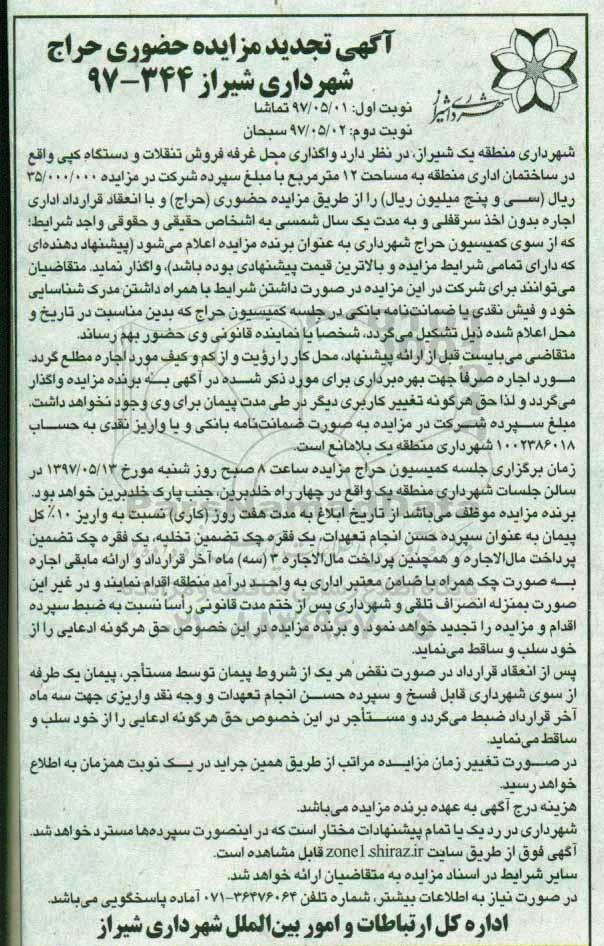 آگهی تجدید مزایده حضوری حراج
شهرداری شیراز ۳۴۴-۹۷
شهرداری شیراز
نوبت اول: ۹۷/۰۵/۰۱ تماشا
نوبت دوم: ۹۷/۰۵/۰۲ سبحان
شهرداری منطقه یک شیراز، در نظر دارد واگذاری محل غرفه فروش تنقلات و دستگاه کپی واقع
در ساختمان اداری منطقه به مساحت ۱۲ مترمربع با مبلغ سپرده شرکت در مزایده ۳۵/۰۰۰/۰۰۰
ریال (سی و پنج میلیون ریال) را از طریق مزایده حضوری (حراج) و با انعقاد قرارداد اداری
اجاره بدون اخذ سرقفلی و به مدت یک سال شمسی به اشخاص حقیقی و حقوقی واجد شرایط؛
که از سوی کمیسیون حراج شهرداری به عنوان برنده مزایده اعلام می‌شود (پیشنهاد دهنده‌ای
که دارای تمامی شرایط مزایده و بالاترین قیمت پیشنهادی بوده باشد)، واگذار نماید. متقاضیان
می‌توانند برای شرکت در این مزایده در صورت داشتن شرایط با همراه داشتن مدرک شناسایی
خود و فیش نقدی یا ضمانت‌نامه بانکی در جلسه کمیسیون حراج که بدین مناسبت در تاریخ و
محل اعلام شده ذیل تشکیل می‌گردد، شخصاً یا نماینده قانونی وی حضور بهم رساند.
متقاضی می‌بایست قبل از ارائه پیشنهاد، محل کار را رؤیت و از کم و کیف مورد اجاره مطلع گردد.
مورد اجاره صرفاً جهت بهره‌برداری برای مورد ذکر شده در آگهی به برنده مزایده واگذار
می‌گردد و لذا حق هرگونه تغییر کاربری دیگر در طی مدت پیمان برای وی وجود نخواهد داشت.
مبلغ سپرده شرکت در مزایده به صورت ضمانت‌نامه بانکی و یا واریز نقدی به حساب
۱۰۰۲۳۸۶۰۱۸ شهرداری منطقه یک بلامانع است.
زمان برگزاری جلسه کمیسیون حراج مزایده ساعت ۸ صبح روز شنبه مورخ ۱۳۹۷/۰۵/۱۳ در
سالن جلسات شهرداری منطقه یک واقع در چهار راه خلدبرین، جنب پارک خلدبرین خواهد بود.
برنده مزایده موظف می‌باشد از تاریخ ابلاغ به مدت هفت روز (کاری) نسبت به واریز ۱۰٪ کل
پیمان به عنوان سپرده حسن انجام تعهدات، یک فقره چک تضمین تخلیه، یک فقره چک تضمین
پرداخت مال‌الاجاره و همچنین پرداخت مال‌الاجاره ۳ (سه) ماه آخر قرارداد و ارائه مابقی اجاره
به صورت چک همراه با ضامن معتبر اداری به واحد درآمد منطقه اقدام نمایند و در غیر این
صورت بمنزله انصراف تلقی و شهرداری پس از ختم مدت قانونی رأساً نسبت به ضبط سپرده
اقدام و مزایده را تجدید خواهد نمود و برنده مزایده در این خصوص حق هرگونه ادعایی را از
خود سلب و ساقط می‌نماید.
پس از انعقاد قرارداد در صورت نقض هر یک از شروط پیمان توسط مستأجر، پیمان یک طرفه
از سوی شهرداری قابل فسخ و سپرده حسن انجام تعهدات و وجه نقد واریزی جهت سه ماه
آخر قرارداد ضبط می‌گردد و مستأجر در این خصوص حق هرگونه ادعایی را از خود سلب و
ساقط می‌نماید.
در صورت تغییر زمان مزایده مراتب از طریق همین جراید در یک نوبت همزمان به اطلاع
خواهد رسید.
هزینه درج آگهی به عهده برنده مزایده می‌باشد.
شهرداری در رد یک یا تمام پیشنهادات مختار است که در اینصورت سپرده‌ها مسترد خواهد شد.
آگهی فوق از طریق سایت zone1.shiraz.ir قابل مشاهده است.
سایر شرایط در اسناد مزایده به متقاضیان ارائه خواهد شد.
در صورت نیاز به اطلاعات بیشتر، شماره تلفن ۳۶۴۷۶۰۶۴-۰۷۱ آماده پاسخگویی می‌باشد.
اداره کل ارتباطات و امور بین‌الملل شهرداری شیراز